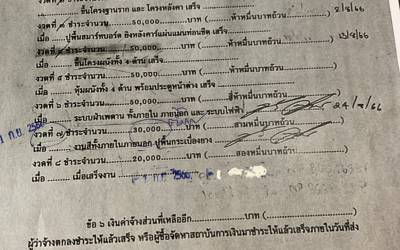 เมื่อ .......... ขึ้นโครงฐานราก และ โครงหลังคา เสร็จ
งวดที่ ๓ ชำระจำนวน......50,000......บาท (......ห้าหมื่นบาทถ้วน......) 8/8/66
เมื่อ ..... ปูพื้นสมาร์ทบอร์ด ยิงหลังคาร์แผ่นแมนท่อนชิด เสร็จ
งวดที่ ๔ ชำระจำนวน......50,000......บาท (......ห้าหมื่นบาทถ้วน......) 13/8/66
เมื่อ ..... ขึ้นโครงผนังทั้ง 4 ด้าน เสร็จ
งวดที่ ๕ ชำระจำนวน......50,000......บาท (......ห้าหมื่นบาทถ้วน......)
เมื่อ ..... หุ้มผนังทั้ง 4 ด้าน พร้อมประตูหน้าต่าง เสร็จ
งวดที่ ๖ ชำระจำนวน......50,000......บาท (......สี่ห้าหมื่นบาทถ้วน......)
เมื่อ ..... ระบบฝ้าเพดาน ทั้งภายใน ภายนอก และ ระบบไฟฟ้า 24/8/66
1 ก.ย. งวดที่ ๗ ชำระจำนวน......30,000......บาท (......สามหมื่นบาทถ้วน......)
เมื่อ ..... งานสีทั้งภายในภายนอก ปูพื้นกระเบื้องยาง
งวดที่ ๘ ชำระจำนวน......20,000......บาท (......สองหมื่นบาทถ้วน......)
เมื่อ ..... เมื่อเสร็จงาน
ข้อ ๖ เงินค่าจ้างส่วนที่เหลืออีก..............................บาท
ผู้ว่าจ้างตกลงชำระให้แล้วเสร็จ หรือผู้ซื้อจัดหาสถาบันการเงินมาชำระให้แล้วเสร็จภายในวันที่ส่ง